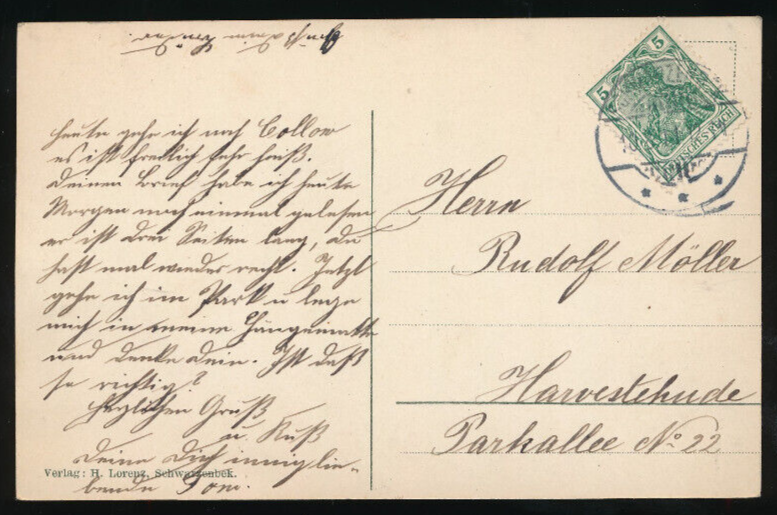 heute gehe ich nach Collow
es ist freilich sehr heiß.
Deinen Brief habe ich heute
Morgen noch einmal gelesen
er ist drei Seiten lang, du
hast mal wieder recht. Jetzt
gehe ich im Park u lege
mich in meine Hängematte
und denke Dein. Ist das
so richtig?
Herzlichen Gruß
u. Kuß
Deine Dich innig lie-
bende
Verlag: H. Lorenz, Schwarzenbek.
5
5
Herrn
Rudolf Möller
Harvestehude
Parkallee No 22